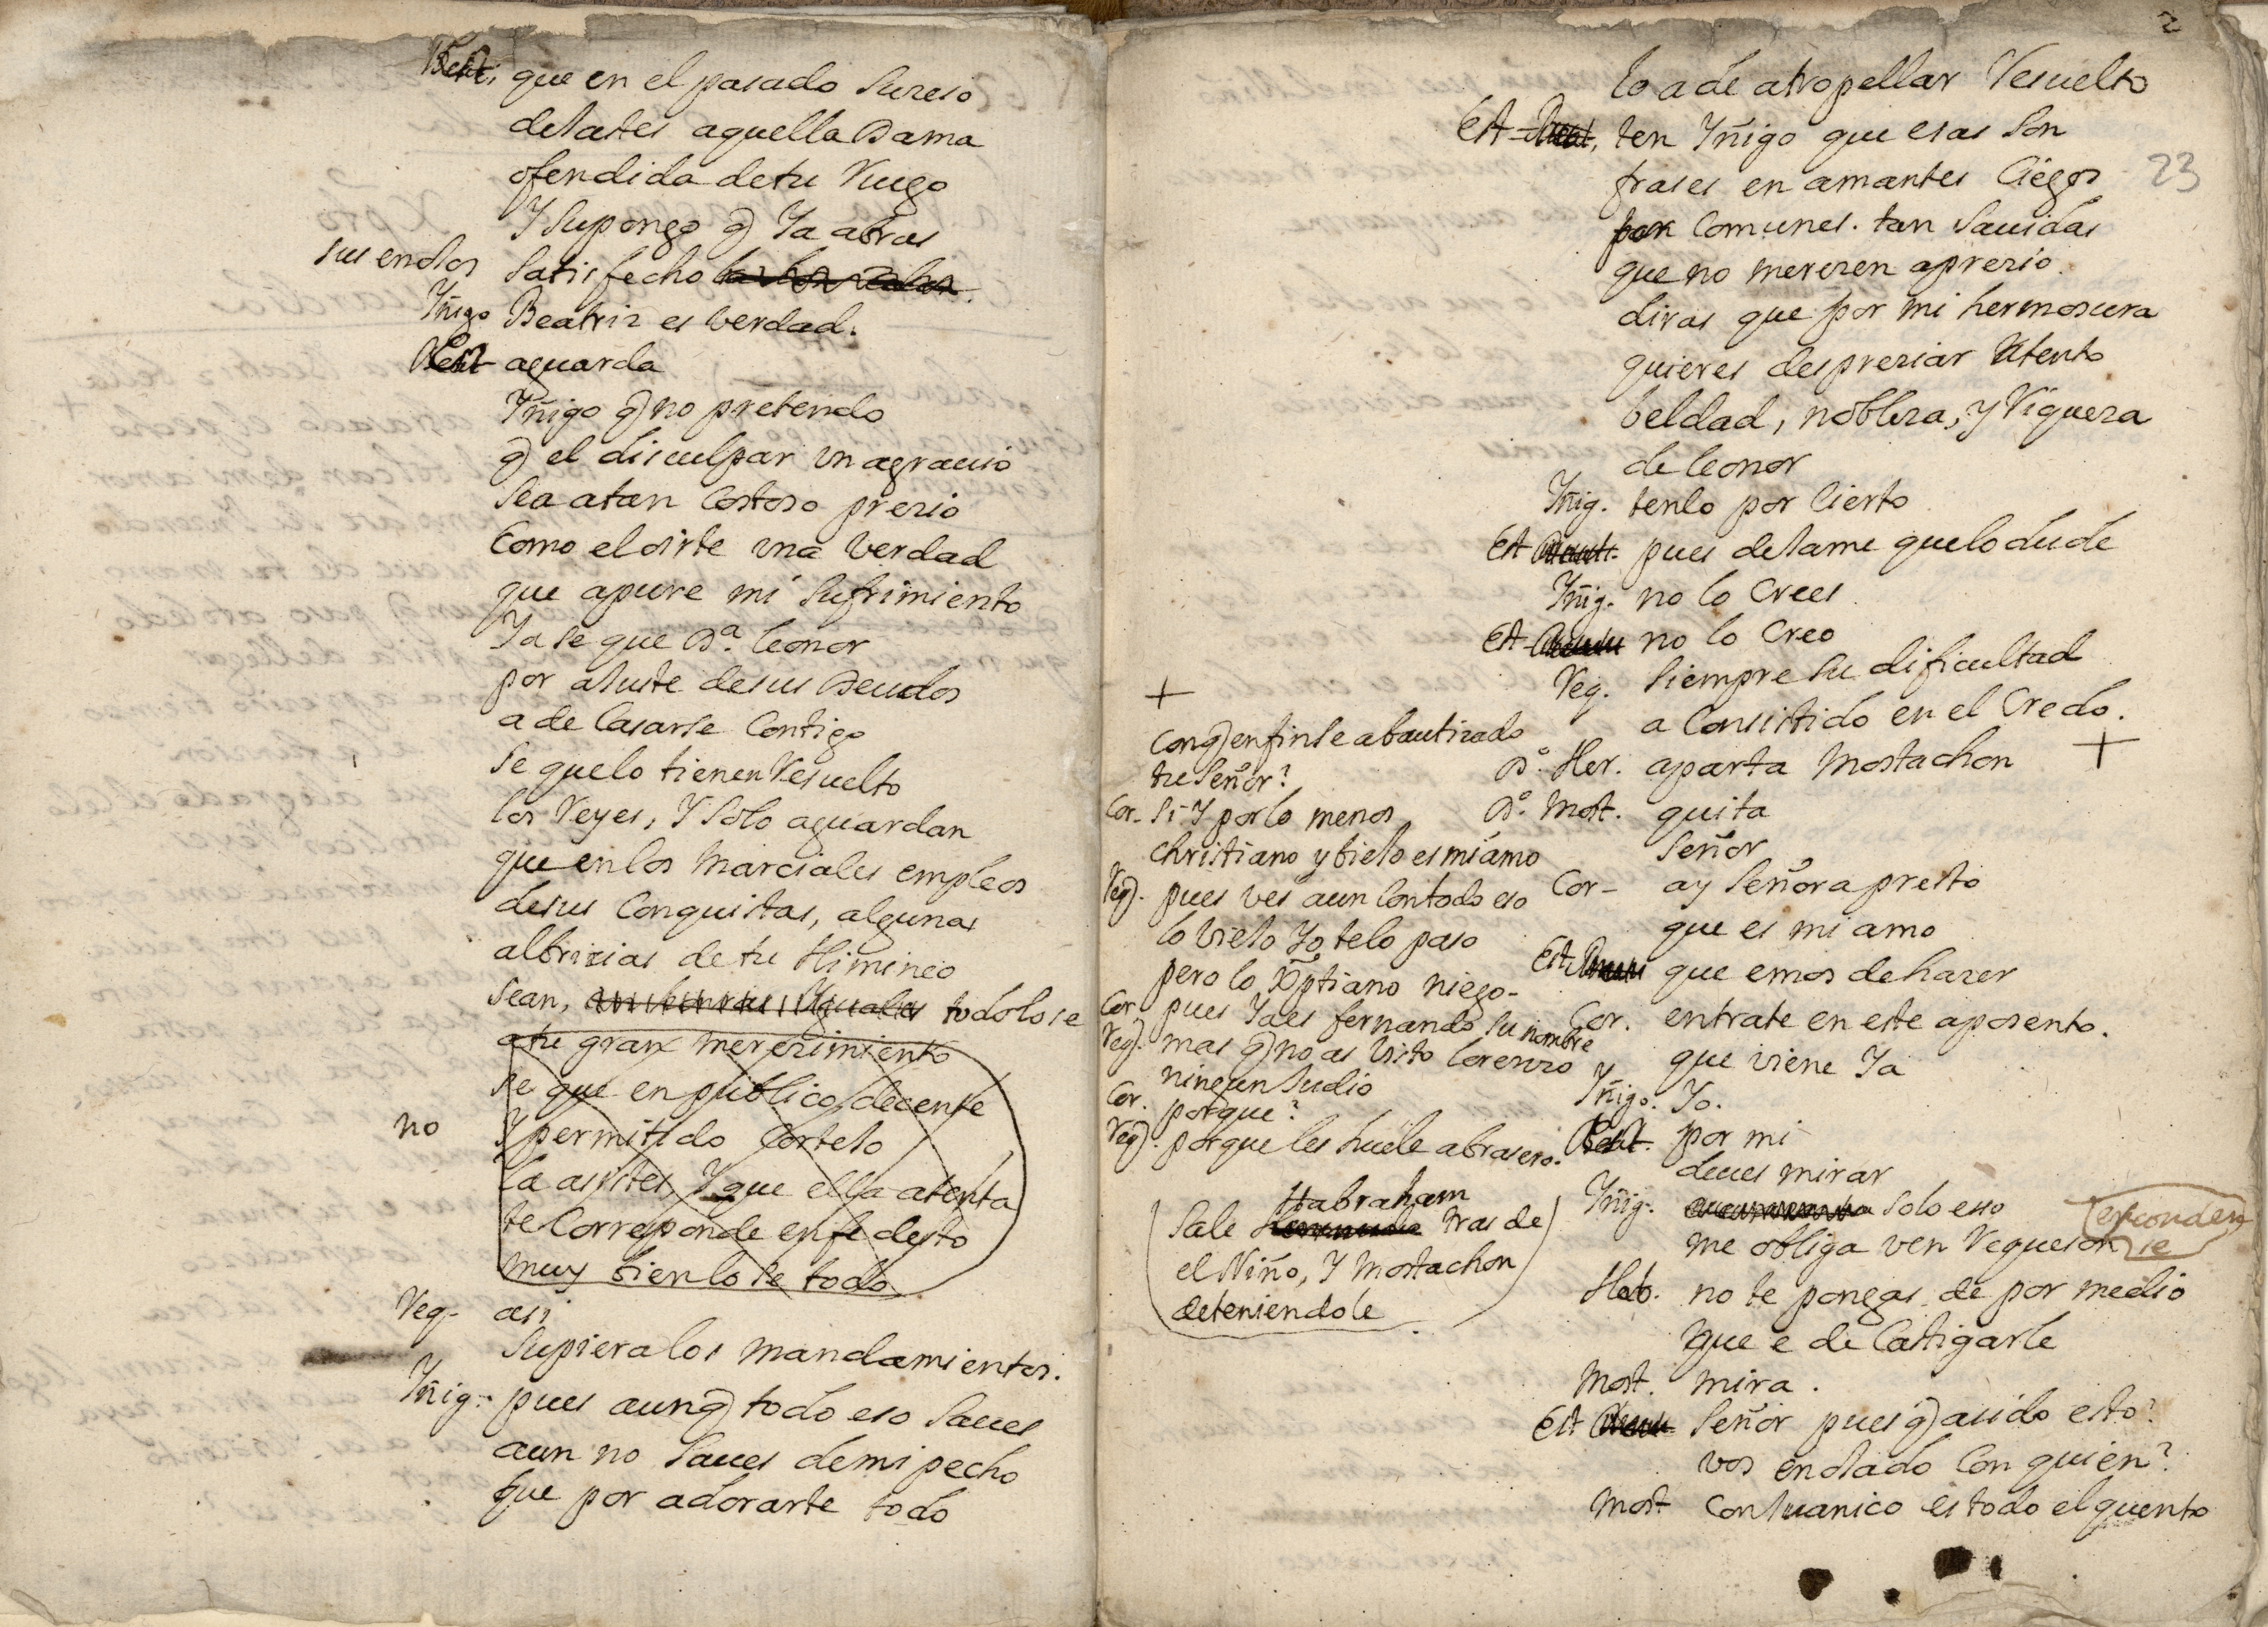 que en el pasado suzeso
desastes aquella Dama
ofendida de tu Ruego
Y Supongo q Ya abras
sus enojos satisfecho
Yñigo Beatriz es verdad.
aguarda
Yñigo q no pretendo
q el disculpar un agrauio
sea a tan Costoso prezio
Como el oirte una verdad
que apure mi Sufrimiento
Ya se que Dª. leonor
por ajuste de sus Deudos
a de Casarse Contigo
se que lo tienen Resuelto
los Reyes, Y Solo aguardan
que en los Marciales empleos
de sus Conquistas, algunas
albrizias de tu Himineo
sean, todo lo se
a tu gran merezimiento
se que en publico, decente
no Y permitido Cortejo
la asistes, Y que ella atenta
te Corresponde en fe desto
muy bien lo se todo
Reg- asi
supiera los mandamientos.
Yñig. pues aunq todo eso saues
aun no saues de mi pecho
que por adorarte todo
2
23
lo a de atropellar Resuelto
Est ten Yñigo que esas son
frases en amantes Ciegos
por Comunes. tan sauidas
que no merezen aprezio.
diras que por mi hermosura
quieres despreziar atento
beldad, nobleza, y Riqueza
de leonor
Yñig. tenlo por Cierto
Est pues dejame que lo dude
Yñig. no lo Crees
Est no lo Creo
Reg. siempre su dificultad
a Consistido en el Credo.
+
D.º Her. aparta Mostachon
D.º Most. quita
señor
Cor- ay señora presto
que es mi amo
Est que emos de hazer
Cor. entrate en este aposento.
que viene Ya
Yñigo. Yo.
por mi
deues mirar
Yñig. solo esso
me obliga ven Requeson
esconden
se
Hab. no te pongas de por medio
que e de Castigarle
Most. mira.
Est señor pues q a sido esto?
vos enojado Con quien?
Most Con Juanico es todo el quento
+
Con q en fin se a bautizado
tu señor?
Cor- si Y por lo menos
christiano y biejo es mi amo
Req. pues ves aun Con todo eso
lo viejo Yo te lo paso
pero lo Xptiano niego-
Cor pues Ya es fernando su nombre
Req. mas q no as visto lorenzo
ningun Judio
Cor. porque?
Req. porque les huele a brasero.
Habraham
Sale tras de
el Niño, Y Mostachon
deteniendole